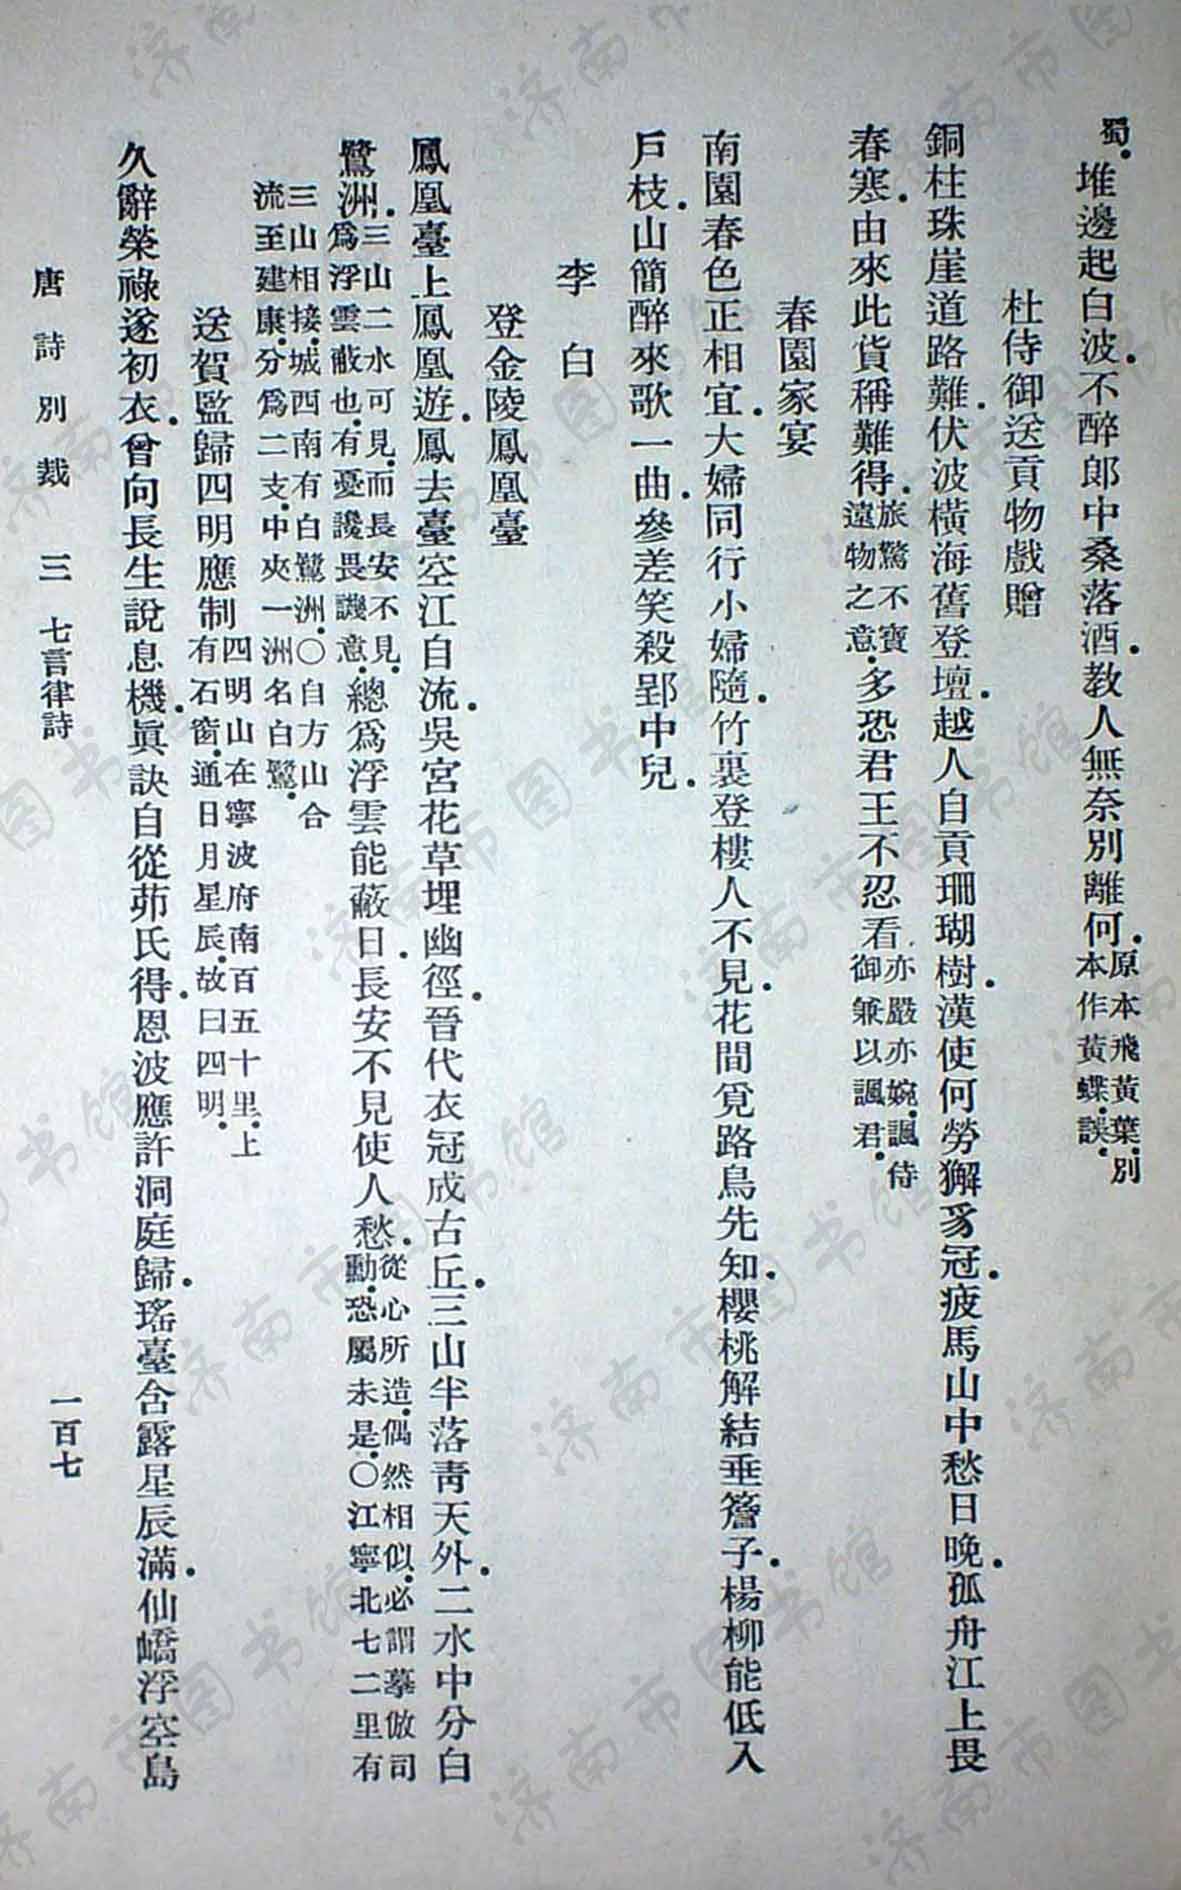 蜀。堆邊起白波。不醉郎中桑落酒。教人無奈別離何。原本飛黃葉。別本作黃蝶。誤。
杜侍御送貢物戲贈
銅柱珠崖道路難。伏波橫海舊登壇。越人自貢珊瑚樹。漢使何勞獬豸冠。疲馬山中愁日晚。孤舟江上畏
春寒。由來此貨稱難得。旅驚不寶遠物之意。多恐君王不忍看。亦嚴亦婉。諷侍御兼以諷君。
春園家宴
南園春色正相宜。大婦同行小婦隨。竹裏登樓人不見。花間覓路鳥先知。櫻桃解結垂簷子。楊柳能低入
戶枝。山簡醉來歌一曲。參差笑殺郢中兒。
李白
登金陵鳳凰臺
鳳凰臺上鳳凰遊。鳳去臺空江自流。吳宮花草埋幽徑。晉代衣冠成古丘。三山半落青天外。二水中分白
鷺洲。三山二水可見。而長安不見。爲浮雲蔽也。有憂讒畏譏意。總爲浮雲能蔽日。長安不見使人愁。從心所造。偶然相似。必謂摹倣司勳。恐屬未是。○江寧北七二里有
三山相接。城西南有白鷺洲。○自方山合流至建康。分爲二支。中夾一洲名白鷺。
送賀監歸四明應制四明山在寧波府南百五十里。上有石窗。通日月星辰。故曰四明。
久辭榮祿遂初衣。曾向長生說息機。眞訣自從茆氏得。恩波應許洞庭歸。瑤臺含露星辰滿。仙嶠浮空島
唐詩別裁 三 七言律詩 一百七
济南市图书馆